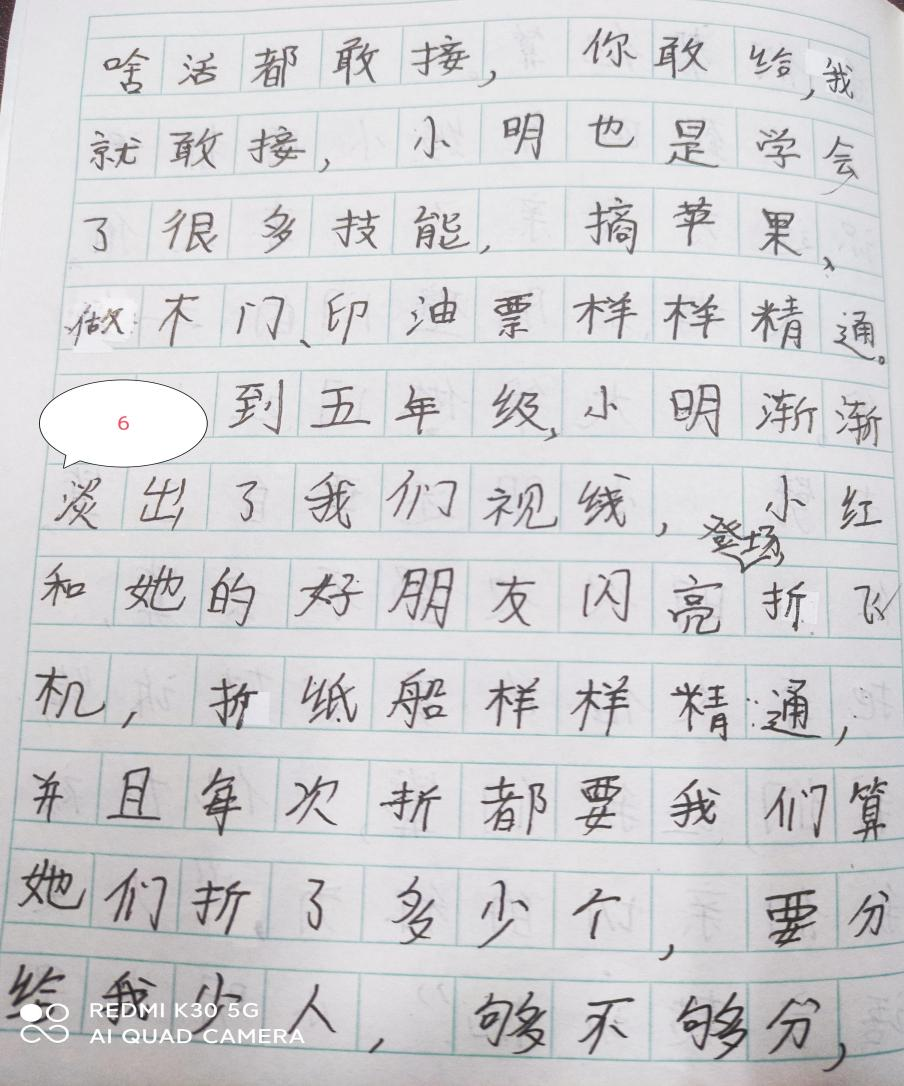 啥活都敢接，你敢给，我
就敢接，小明也是学会
了很多技能，摘苹果、
做木门、印油票样样精通。
6
到五年级，小明渐渐
淡出了我们视线，小红
和她的好朋友闪亮登场，折飞
机，折纸船样样精通，
并且每次折都要我们算
她们折了多少个，要分
给我少人，够不够分，
REDMI K30 5G
AI QUAD CAMERA